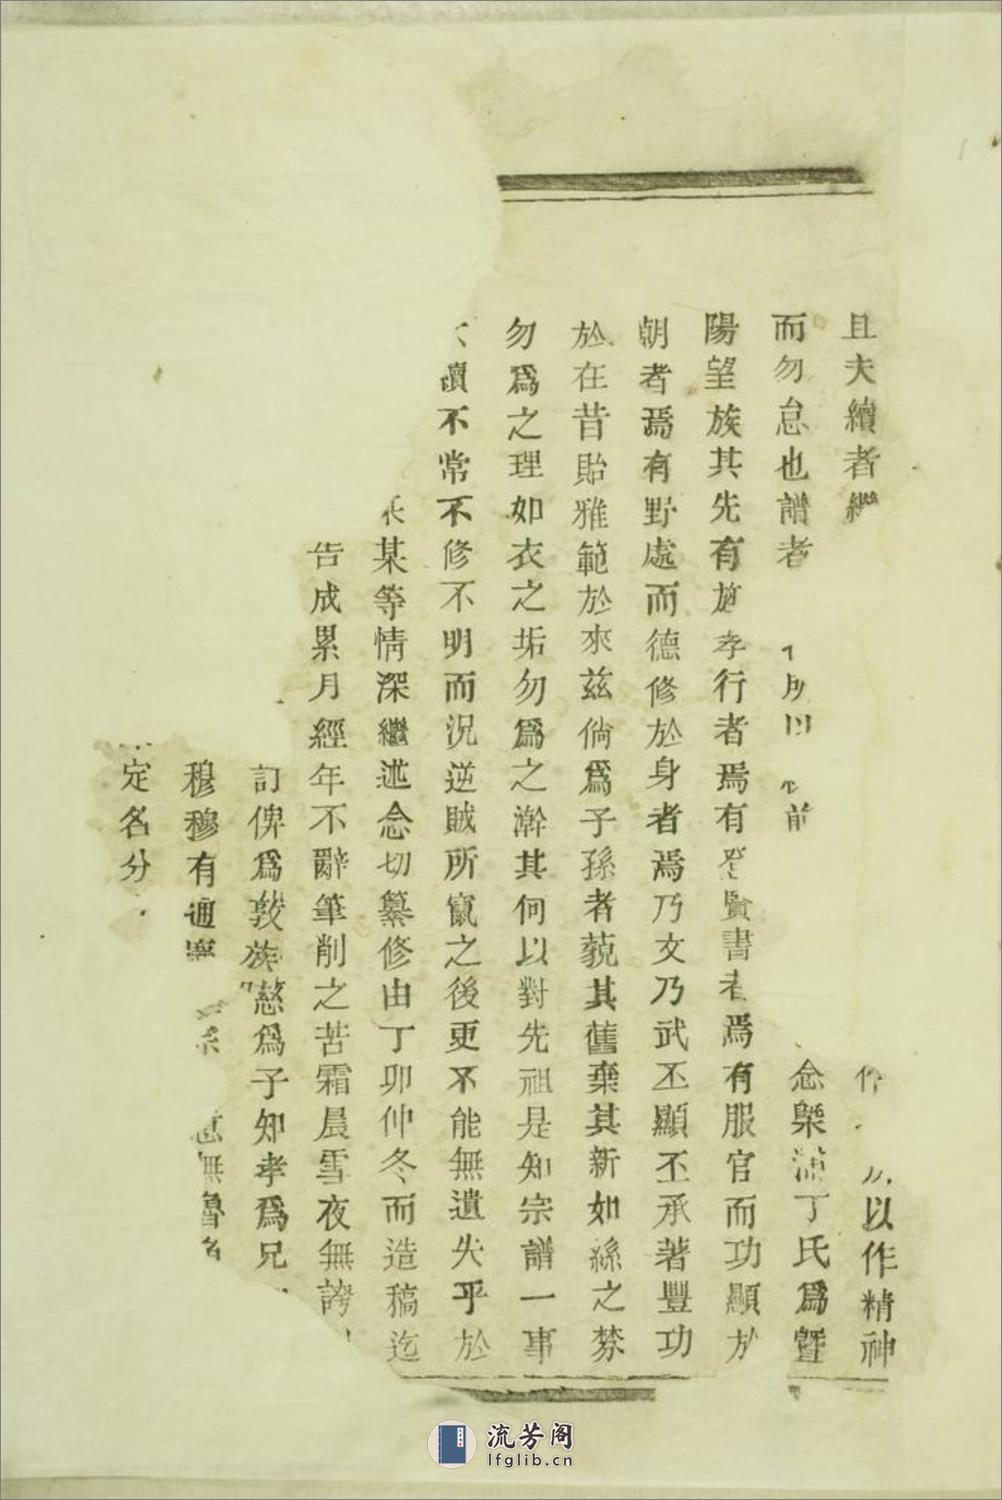 且夫續者繼作以作精神
而勿怠也譜者所以前念槩浦丁氏爲暨
陽望族其先有施孝行者焉有登賢書者焉有服官而功顯於
朝者焉有野處而德修於身者焉乃文乃武丕顯丕承著豐功
於在昔貽雅範於來茲倘爲子孫者藐其舊棄其新如絲之棼
勿爲之理如衣之垢勿爲之澣其何以對先祖是知宗譜一事
不續不常不修不明而況逆賊所竄之後更不能無遺失乎於
某等情深繼述念切纂修由丁卯仲冬而造稿迄
告成累月經年不辭筆削之苦霜晨雪夜無誇
訂俾爲敦族慈爲子知孝爲兄
穆穆有通無魯
定名分
流芳阁
lfglib.cn